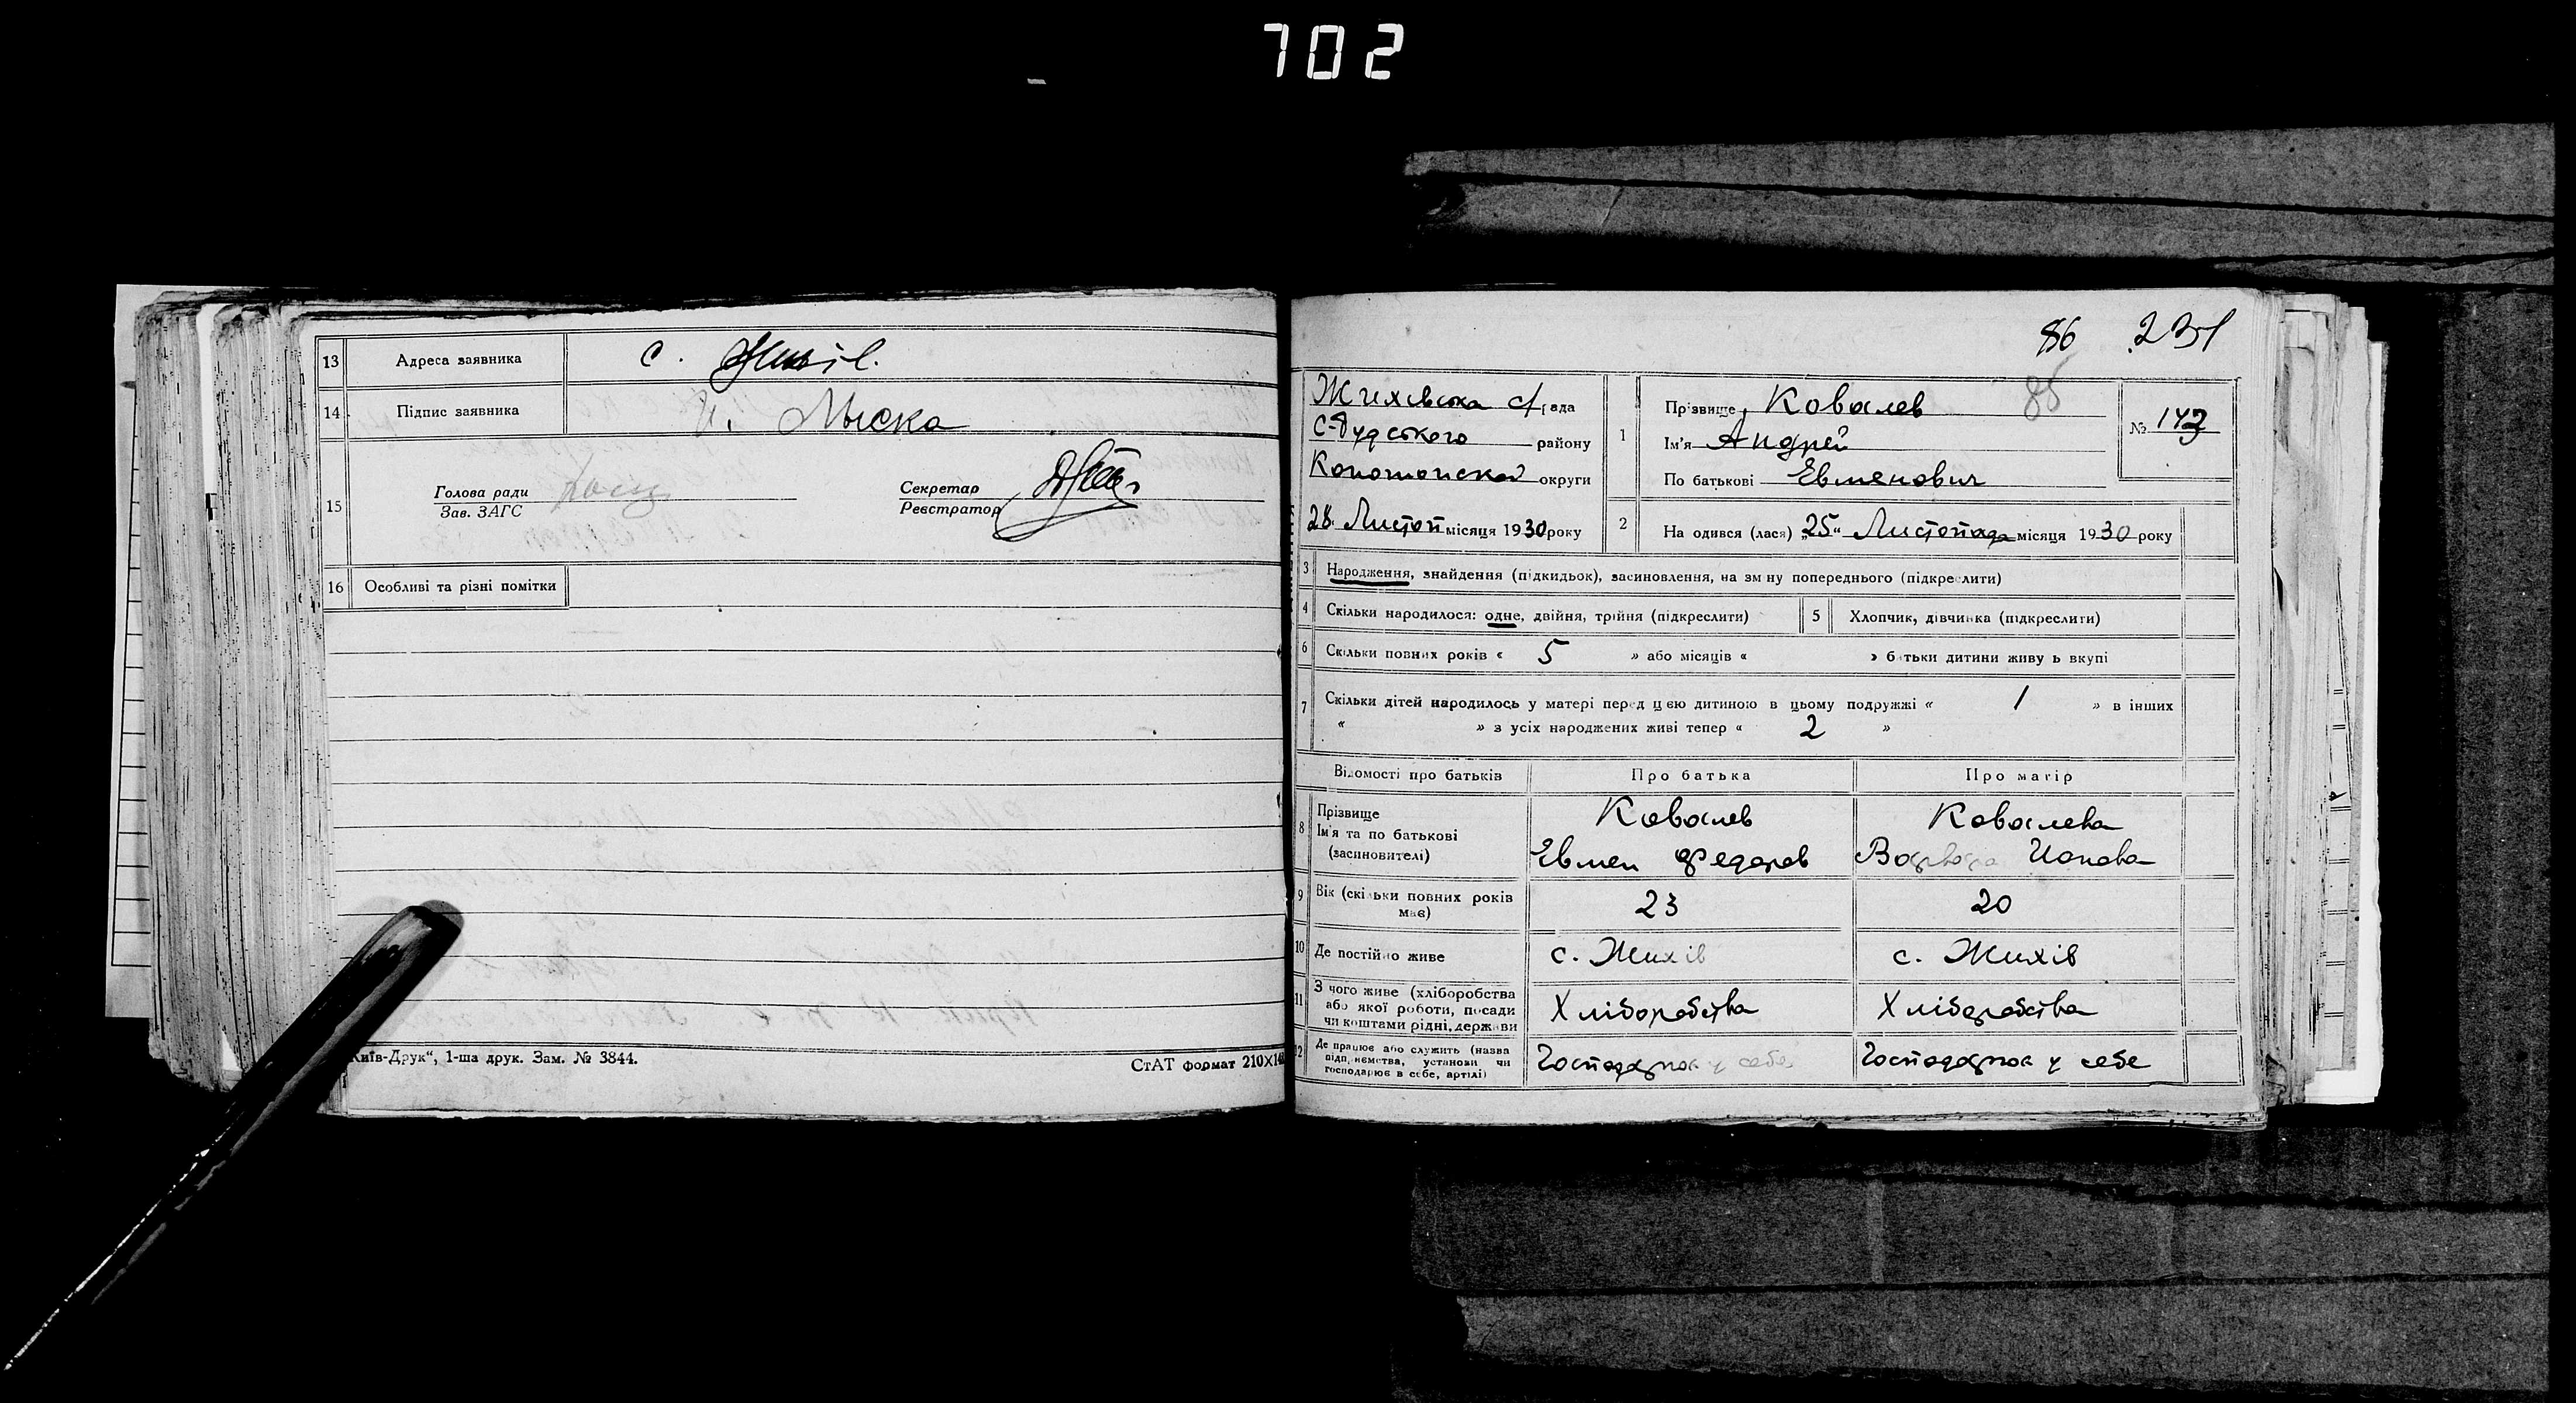 702
13 Адреса заявника с. Жихів.
14. Підпис заявника И. Лыска
15 Голова ради
Зав. ЗАГС
Секретар
Реєстратор
16 Особливі та різні помітки
Київ-Друк“, 1-ша друк. Зам. № 3844.
СтАТ формат 210×14
86 231
85
Жихівська с/рада
С-Будського району
Конотопской округи
28. Листоп місяця 1930 року
1 Прізвище Ковалев
Ім'я Андрей
По батькові Евменович
№ 142
2 На одився (лася) „25“ Листопада місяця 1930 року
3 Народження, знайдення (підкидьок), засиновлення, на зм ну попереднього (підкреслити)
4 Скільки народилося: одне, двійня, трійня (підкреслити) 5 Хлопчик, дівчинка (підкреслити)
6 Скільки повних років « 5 » або місяців « » батьки дитини живу ь вкупі
7 Скільки дітей народилось у матері перед цією дитиною в цьому подружжі « 1 » в інших
« » з усіх народжених живі тепер « 2 »
Відомості про батьків Про батька Про матір
8 Прізвище
Ім'я та по батькові
(засиновителі)
Ковалев
Евмен Федоров
Ковалева
Варвара Ионова
9 Вік (скільки повних років
має)
23 20
10 Де постійно живе с. Жихів с. Жихів
11 З чого живе (хліборобства
або якої роботи, посади
чи коштами рідні, держави
Хліборобства Хліборобства
12 Де працює або служить (назва
підприємства, установи чи
господарює в себе, артілі)
Господарює у себе Господарює у себе